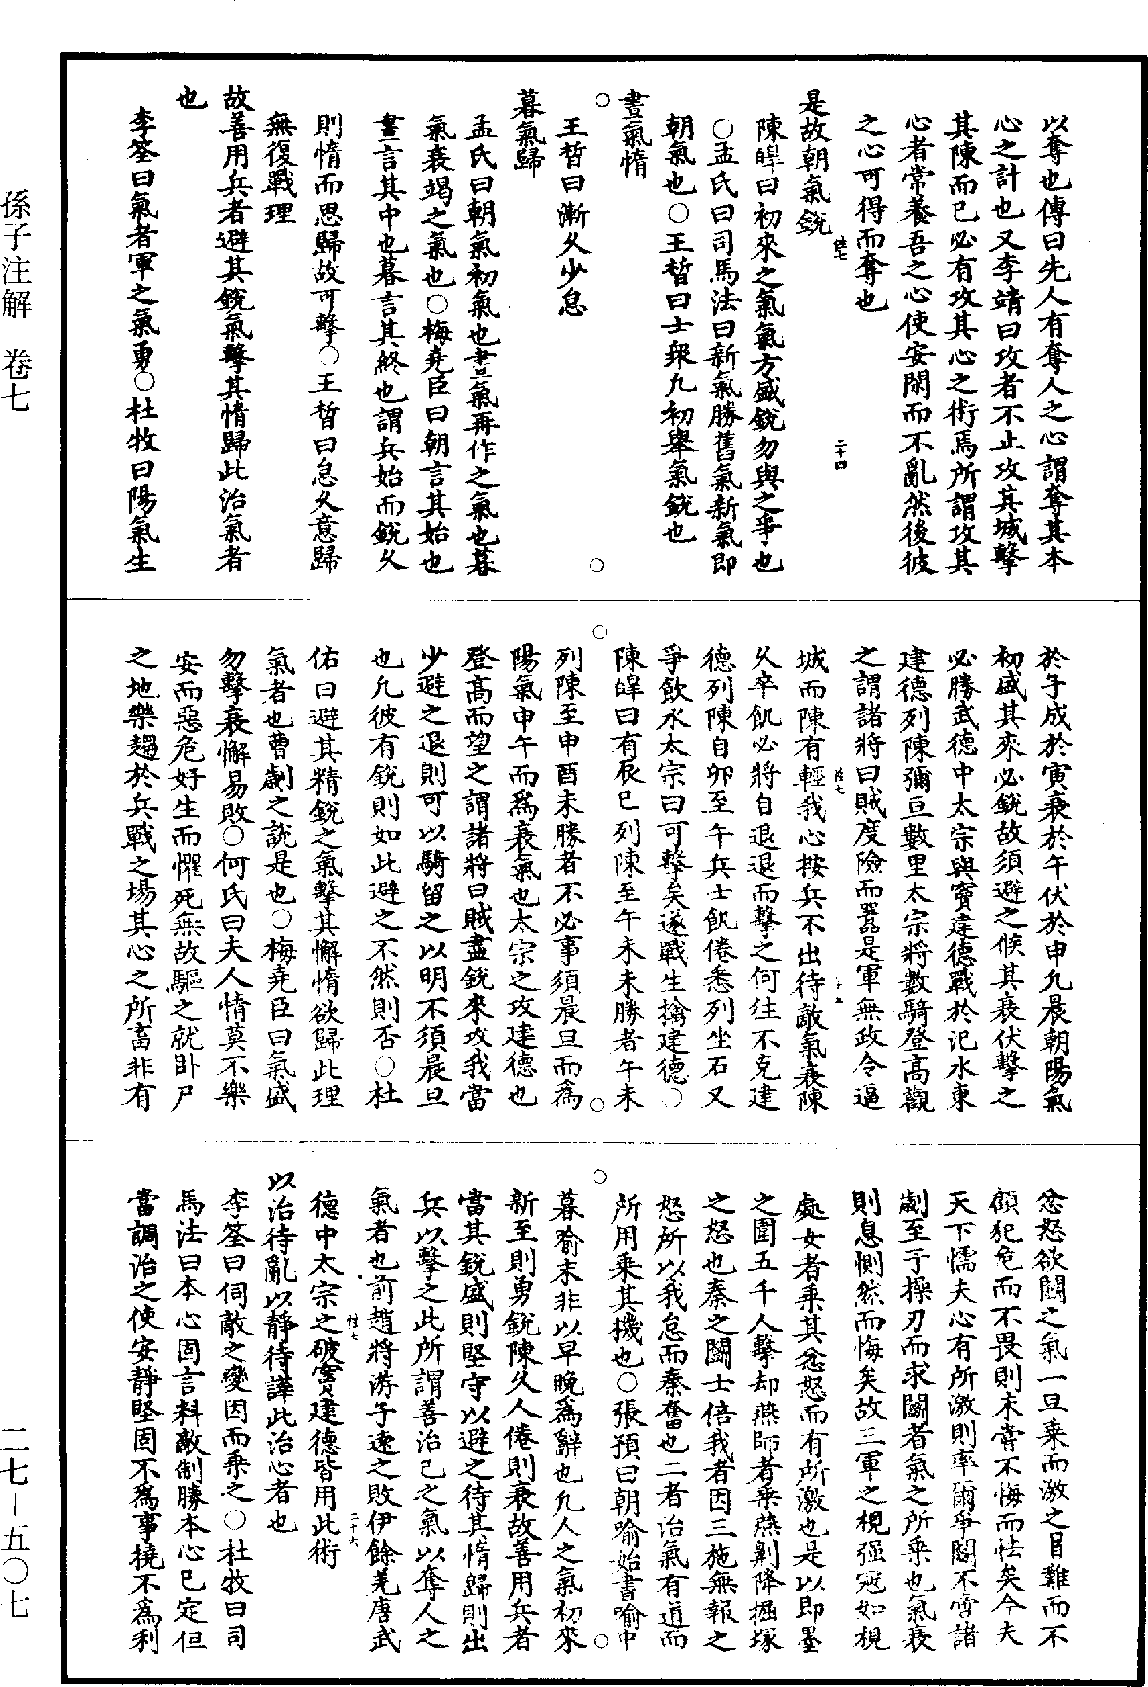 以奪也傳曰先人有奪人之心謂奪其本
心之計也又李靖曰攻者不止攻其城擊
其陳而已必有攻其心之術焉所謂攻其
心者常養吾之心使安閑而不亂然後彼
之心可得而奪也
是故朝氣銳
陳皥曰初來之氣氣方盛銳勿與之爭也
○孟氏曰司馬法曰新氣勝舊氣新氣即
朝氣也○王晳曰士衆凡初舉氣銳也
晝氣惰
王晳曰漸久少怠
暮氣歸
孟氏曰朝氣初氣也晝氣再作之氣也暮
氣衰竭之氣也○梅堯臣曰朝言其始也
晝言其中也暮言其終也謂兵始而銳久
則惰而思歸故可擊○王晳曰怠久意歸
無復戰理
故善用兵者避其銳氣擊其惰歸此治氣者
也
李筌曰氣者軍之氣勇○杜牧曰陽氣生
於子成於寅衰於午伏於申凡晨朝陽氣
初盛其來必銳故須避之候其衰伏擊之
必勝武德中太宗與竇建德戰於汜水東
建德列陳彌亘數里太宗將數騎登高觀
之謂諸將曰賊度險而囂是軍無政令逼
城而陳有輕我心按兵不出待敵氣衰陳
久卒飢必將自退退而擊之何往不克建
德列陳自卯至午兵士飢倦悉列坐石又
爭飲水太宗曰可擊矣遂戰生擒建德○
陳皥曰有辰巳列陳至午未未勝者午未
列陳至申酉未勝者不必事須晨旦而爲
陽氣申午而爲衰氣也太宗之攻建德也
登高而望之謂諸將曰賊盡銳來攻我當
少避之退則可以騎留之以明不須晨旦
也凡彼有銳則如此避之不然則否○杜
佑曰避其精銳之氣擊其懈惰欲歸此理
氣者也曹劌之說是也○梅堯臣曰氣盛
勿擊衰懈易敗○何氏曰夫人情莫不樂
安而惡危好生而懼死無故驅之就臥尸
之地樂趨於兵戰之場其心之所畜非有
忿怒欲鬭之氣一旦乘而激之冒難而不
顧犯危而不畏則未嘗不悔而怯矣今夫
天下懦夫心有所激則率爾爭鬭不啻諸
劌至于操刃而求鬭者氣之所乘也氣衰
則息惻然而悔矣故三軍之視强冦如視
處女者乘其忿怒而有所激也是以即墨
之圍五千人擊却燕師者乘燕劓降掘塚
之怒也秦之鬭士倍我者因三施無報之
怒所以我怠而秦奮也二者治氣有道而
所用乘其機也○張預曰朝喻始晝喻中
暮喻末非以早晚爲辭也凡人之氣初來
新至則勇銳陳久人倦則衰故善用兵者
當其銳盛則堅守以避之待其惰歸則出
兵以擊之此所謂善治己之氣以奪人之
氣者也前趙將游子遠之敗伊餘羌唐武
德中太宗之破竇建德皆用此術
以治待亂以靜待譁此治心者也
李筌曰伺敵之變因而乘之○杜牧曰司
馬法曰本心固言料敵制勝本心已定但
當調治之使安靜堅固不爲事撓不爲利
孫子注解 卷七
二七－五〇七